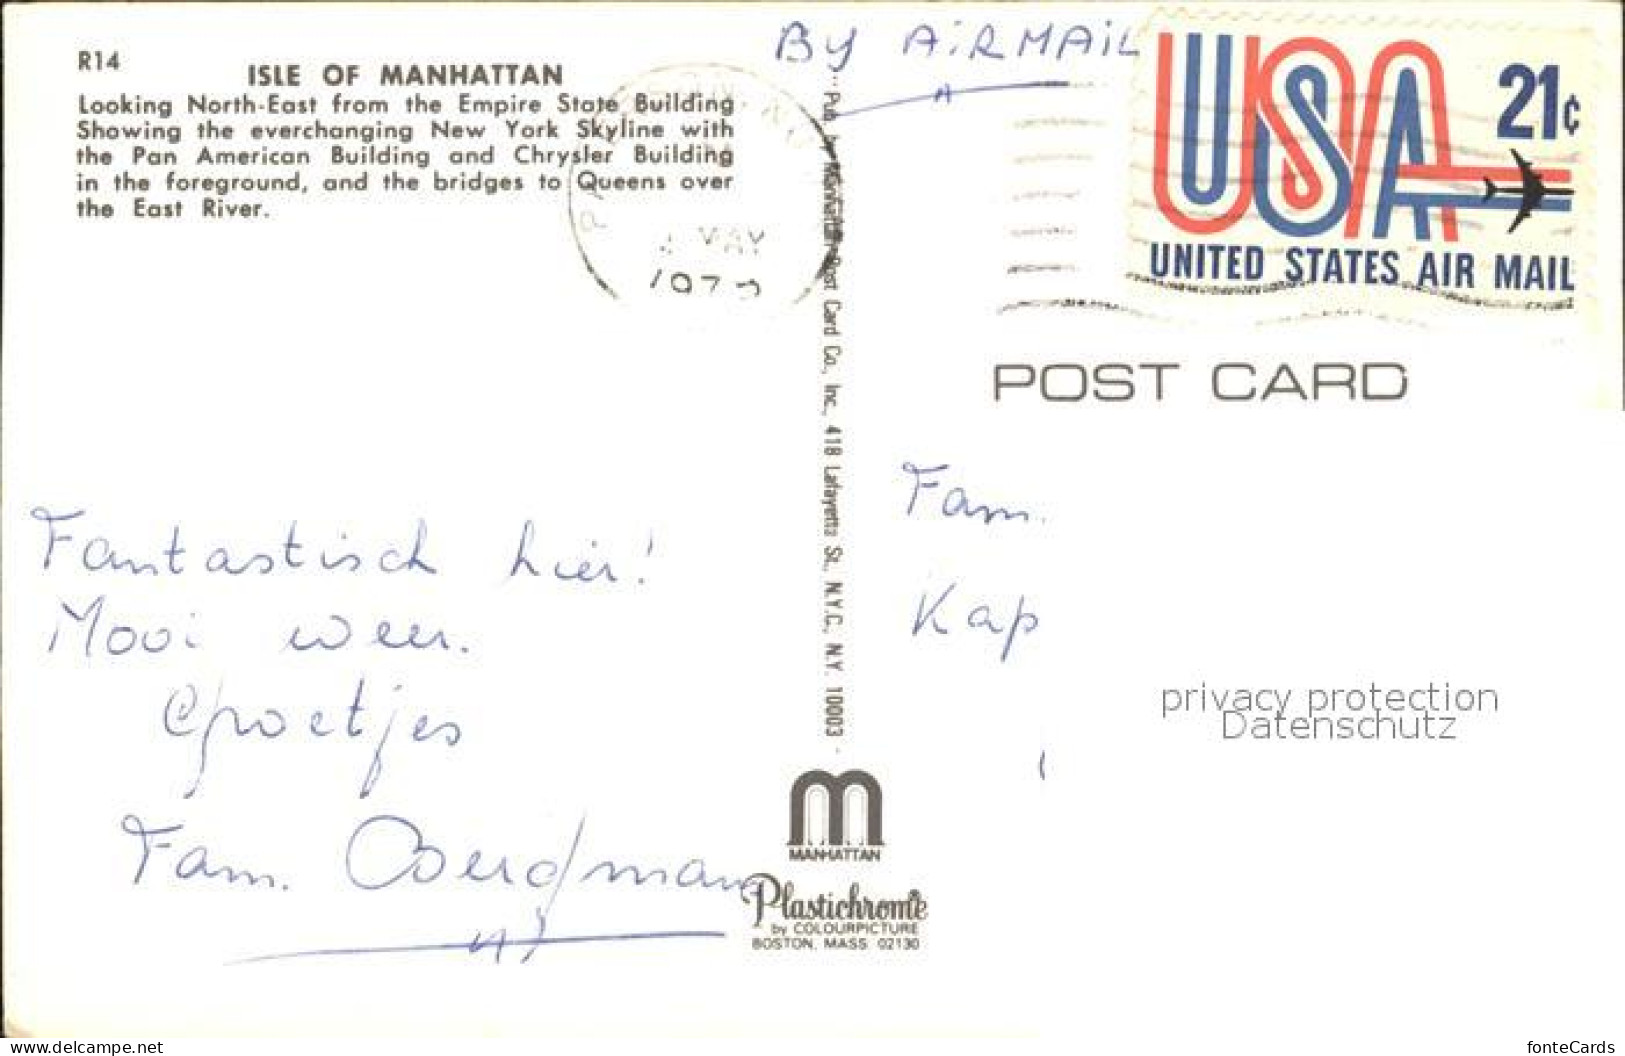 R14
ISLE OF MANHATTAN
Looking North-East from the Empire State Building
Showing the everchanging New York Skyline with
the Pan American Building and Chrysler Building
in the foreground, and the bridges to Queens over
the East River.
MAY
BY AiRMAiL
21¢
USA
UNITED STATES AIR MAIL
POST CARD
Pub. by Manhattan Post Card Co., Inc., 418 Lafayette St., N.Y.C., N.Y. 10003
Fantastisch hier!
Mooi weer.
Groetjes
Fam. Bergman
Fam.
Kap
privacy protection
Datenschutz
MANHATTAN
Plastichrome®
by COLOURPICTURE
BOSTON, MASS. 02130
www.delcampe.net
fonteCards